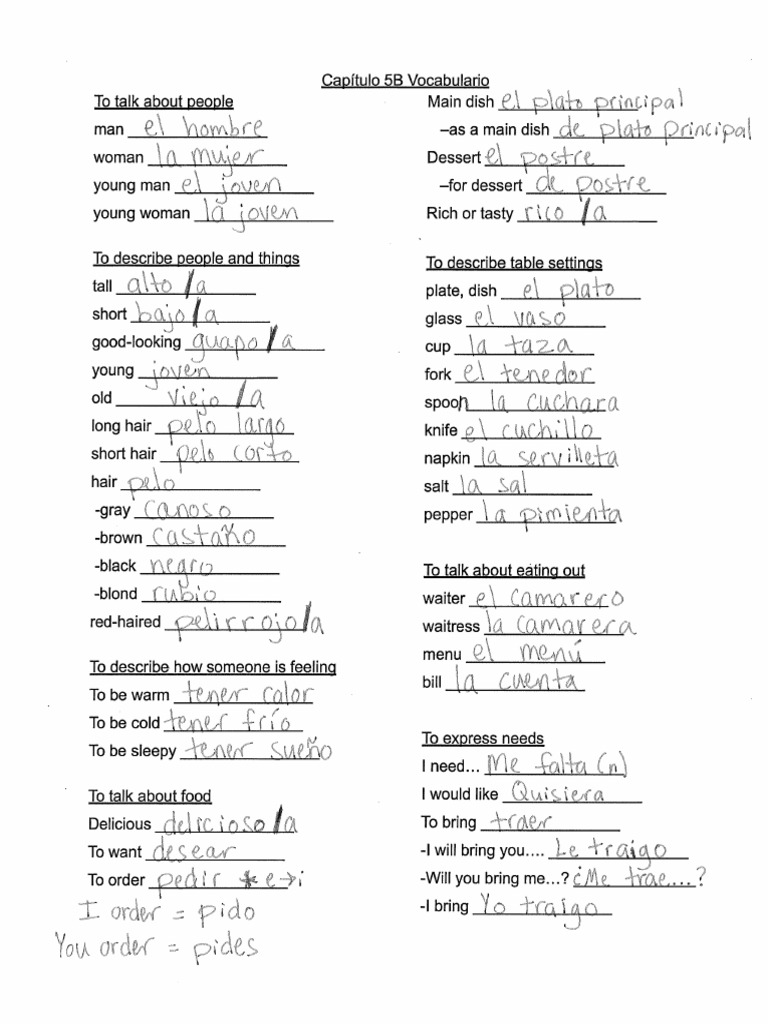 Capítulo 5B Vocabulario
To talk about people
man el hombre
woman la mujer
young man el joven
young woman la joven
To describe people and things
tall alto/a
short bajo/a
good-looking guapo/a
young joven
old viejo/a
long hair pelo largo
short hair pelo corto
hair pelo
-gray canoso
-brown castaño
-black negro
-blond rubio
red-haired pelirrojo/a
To describe how someone is feeling
To be warm tener calor
To be cold tener frío
To be sleepy tener sueño
To talk about food
Delicious delicioso/a
To want desear
To order pedir * e→i
I order = pido
You order = pides
Main dish el plato principal
–as a main dish de plato principal
Dessert el postre
–for dessert de postre
Rich or tasty rico/a
To describe table settings
plate, dish el plato
glass el vaso
cup la taza
fork el tenedor
spoon la cuchara
knife el cuchillo
napkin la servilleta
salt la sal
pepper la pimienta
To talk about eating out
waiter el camarero
waitress la camarera
menu el menú
bill la cuenta
To express needs
I need… Me falta(n)
I would like Quisiera
To bring traer
-I will bring you…. Le traigo
-Will you bring me…? ¿Me trae....?
-I bring Yo traigo